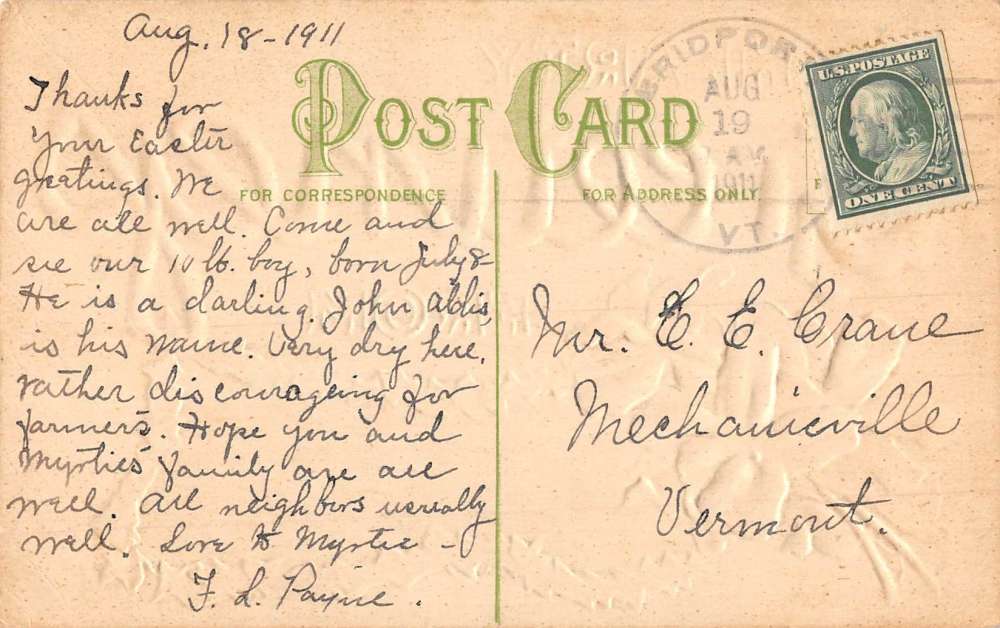 Aug. 18-1911
Thanks for
your Easter
greetings. We
are all well. Come and
see our 10 lb. boy, born July 8
He is a darling. John Aldis,
is his name. Very dry here,
rather discourageing for
farmers. Hope you and
Myrties family are all
well. All neighbors usually
well. Love to Myrtie -
F. L. Payne.
POST CARD
FOR CORRESPONDENCE
FOR ADDRESS ONLY.
BRIDPORT
AUG
19
AM
1911
VT.
U.S.POSTAGE
ONE CENT
Mr. E. E. Crane
Mechanicville
Vermont.